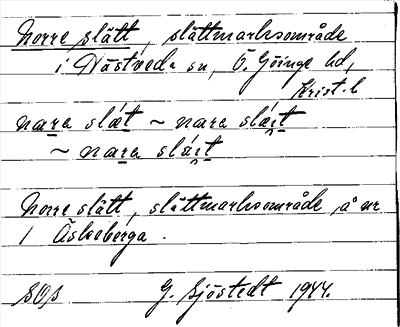 Norre slått, slåttmarksområde
i Nåstveda sn, Ö. Göinge hd,
Krist. l
nara slåt ~ nara slårt
~ nara slårt
Norre slått, slåttmarksområde, å nr
1 Äskeberga.
G. Sjöstedt 1944.